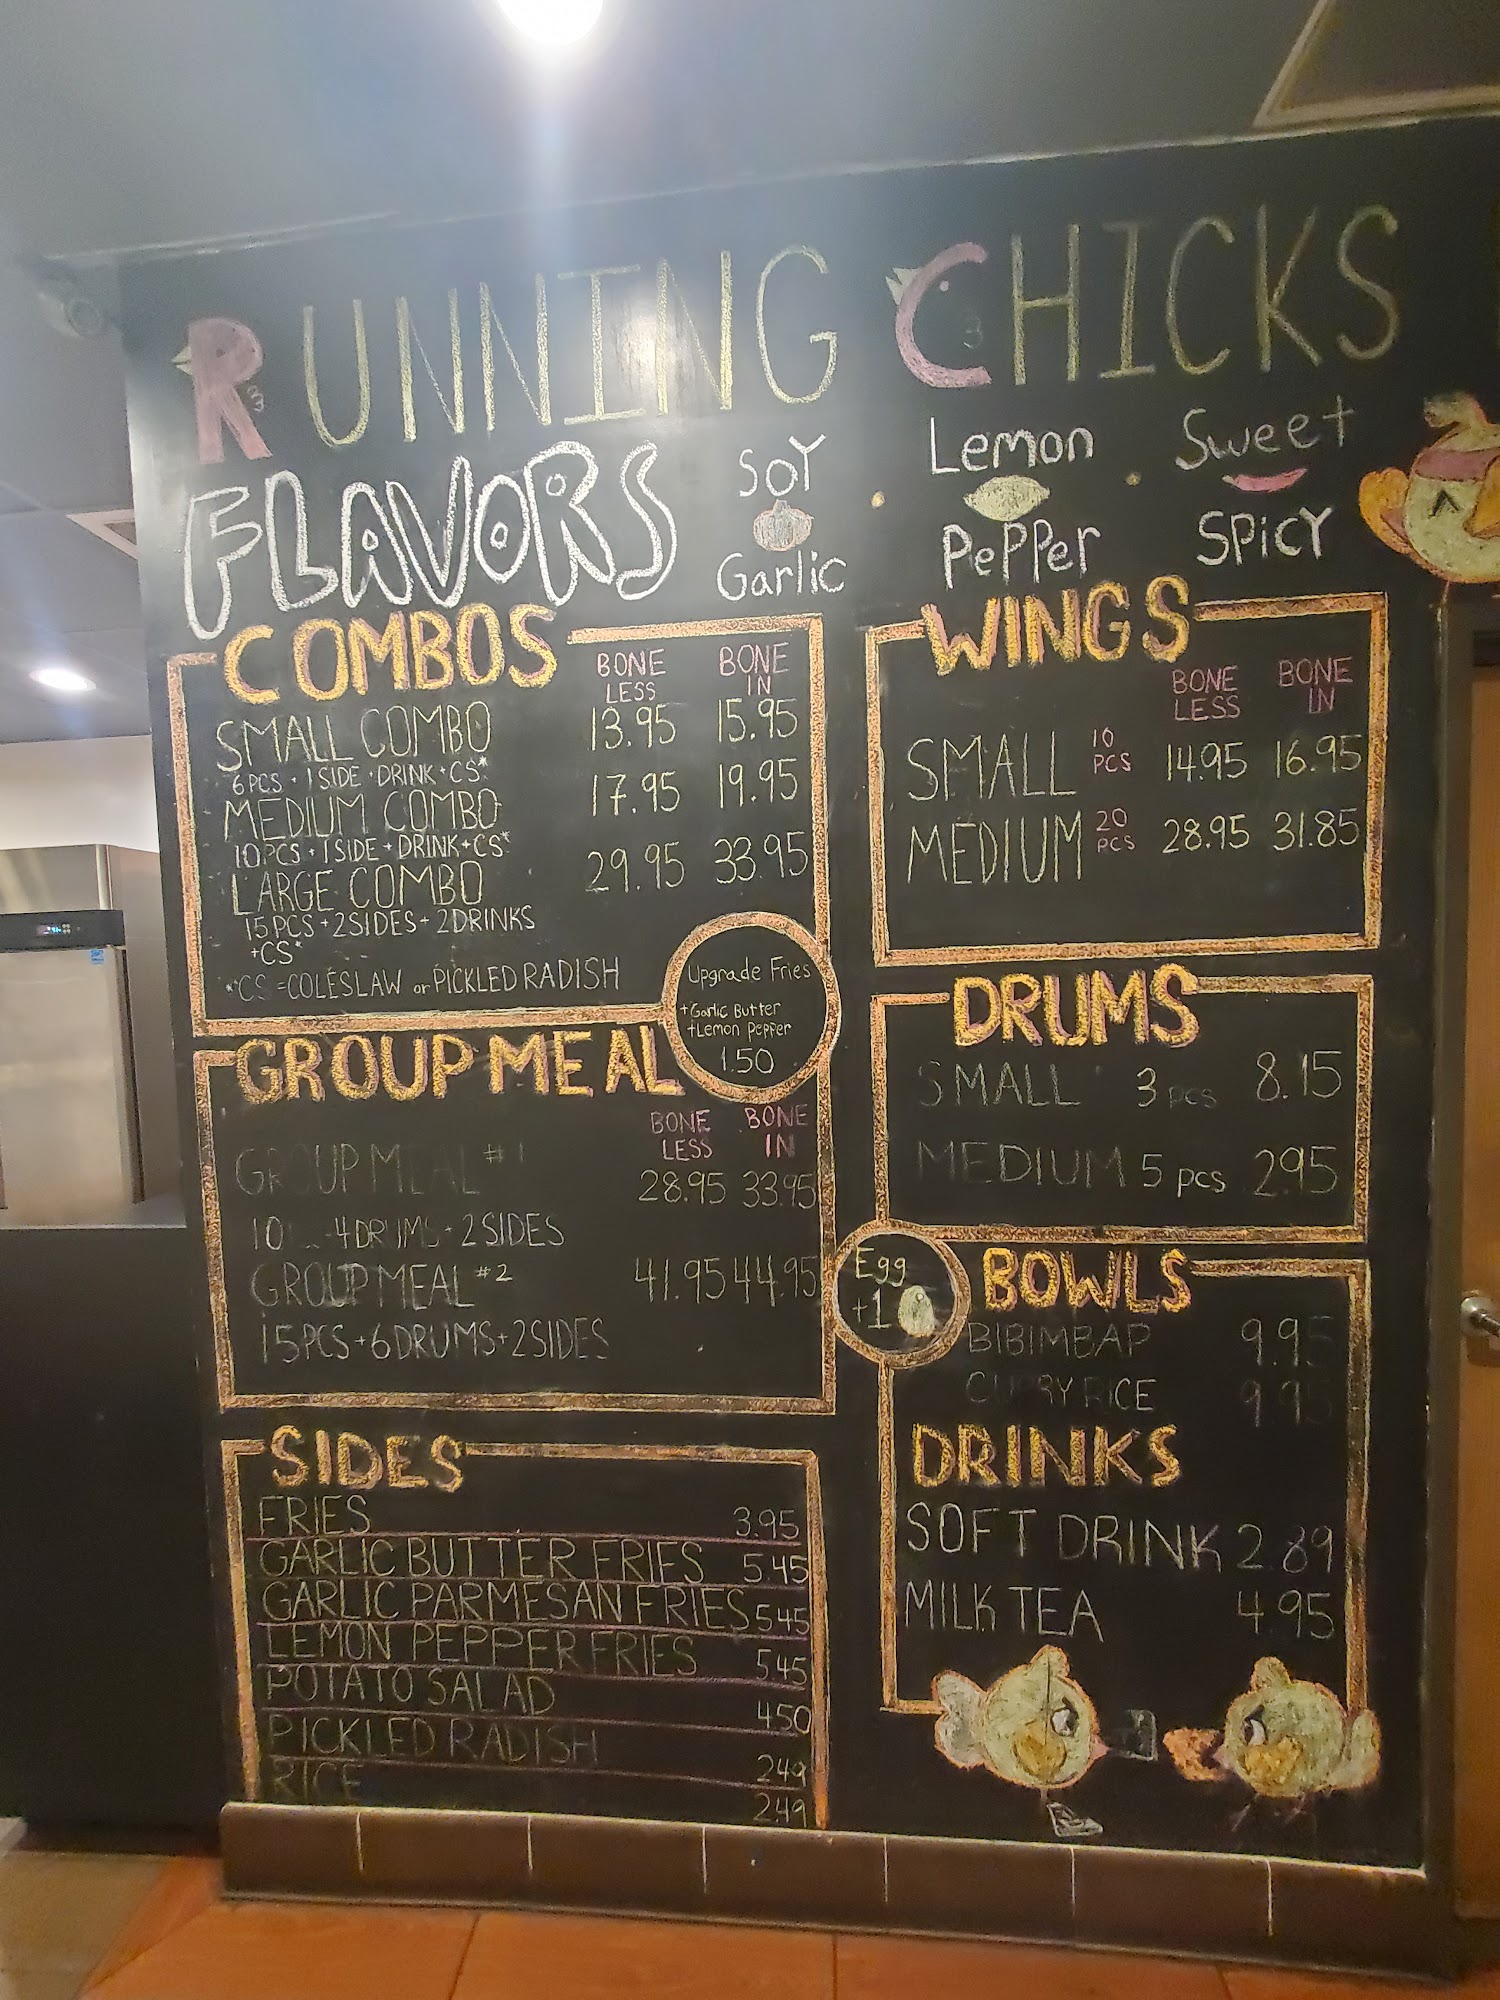 RUNNING CHICKS
FLAVORS
SOY
Garlic
Lemon
PePPer
Sweet
SPiCY
COMBOS
BONE LESS
BONE IN
SMALL COMBO 13.95 15.95
6PCS + 1SIDE + DRINK + CS*
MEDIUM COMBO 17.95 19.95
10PCS + 1SIDE + DRINK + CS*
LARGE COMBO 29.95 33.95
15PCS + 2SIDES + 2DRINKS
+CS*
*CS = COLESLAW or PICKLED RADISH
Upgrade Fries
+Garlic Butter
+Lemon Pepper
1.50
GROUP MEAL
BONE LESS
BONE IN
GROUP MEAL #1 28.95 33.95
10 4DRUMS + 2SIDES
GROUP MEAL #2 41.95 44.95
15PCS + 6DRUMS + 2SIDES
SIDES
FRIES 3.95
GARLIC BUTTER FRIES 5.45
GARLIC PARMESAN FRIES 5.45
LEMON PEPPER FRIES 5.45
POTATO SALAD 4.50
PICKLED RADISH 2.49
RICE 2.49
WINGS
BONE LESS
BONE IN
SMALL 10 PCS 14.95 16.95
MEDIUM 20 PCS 28.95 31.85
DRUMS
SMALL 3 pcs 8.15
MEDIUM 5 pcs 2.95
Egg
+1
BOWLS
BIBIMBAP 9.95
CURRY RICE 9.95
DRINKS
SOFT DRINK 2.89
MILK TEA 4.95